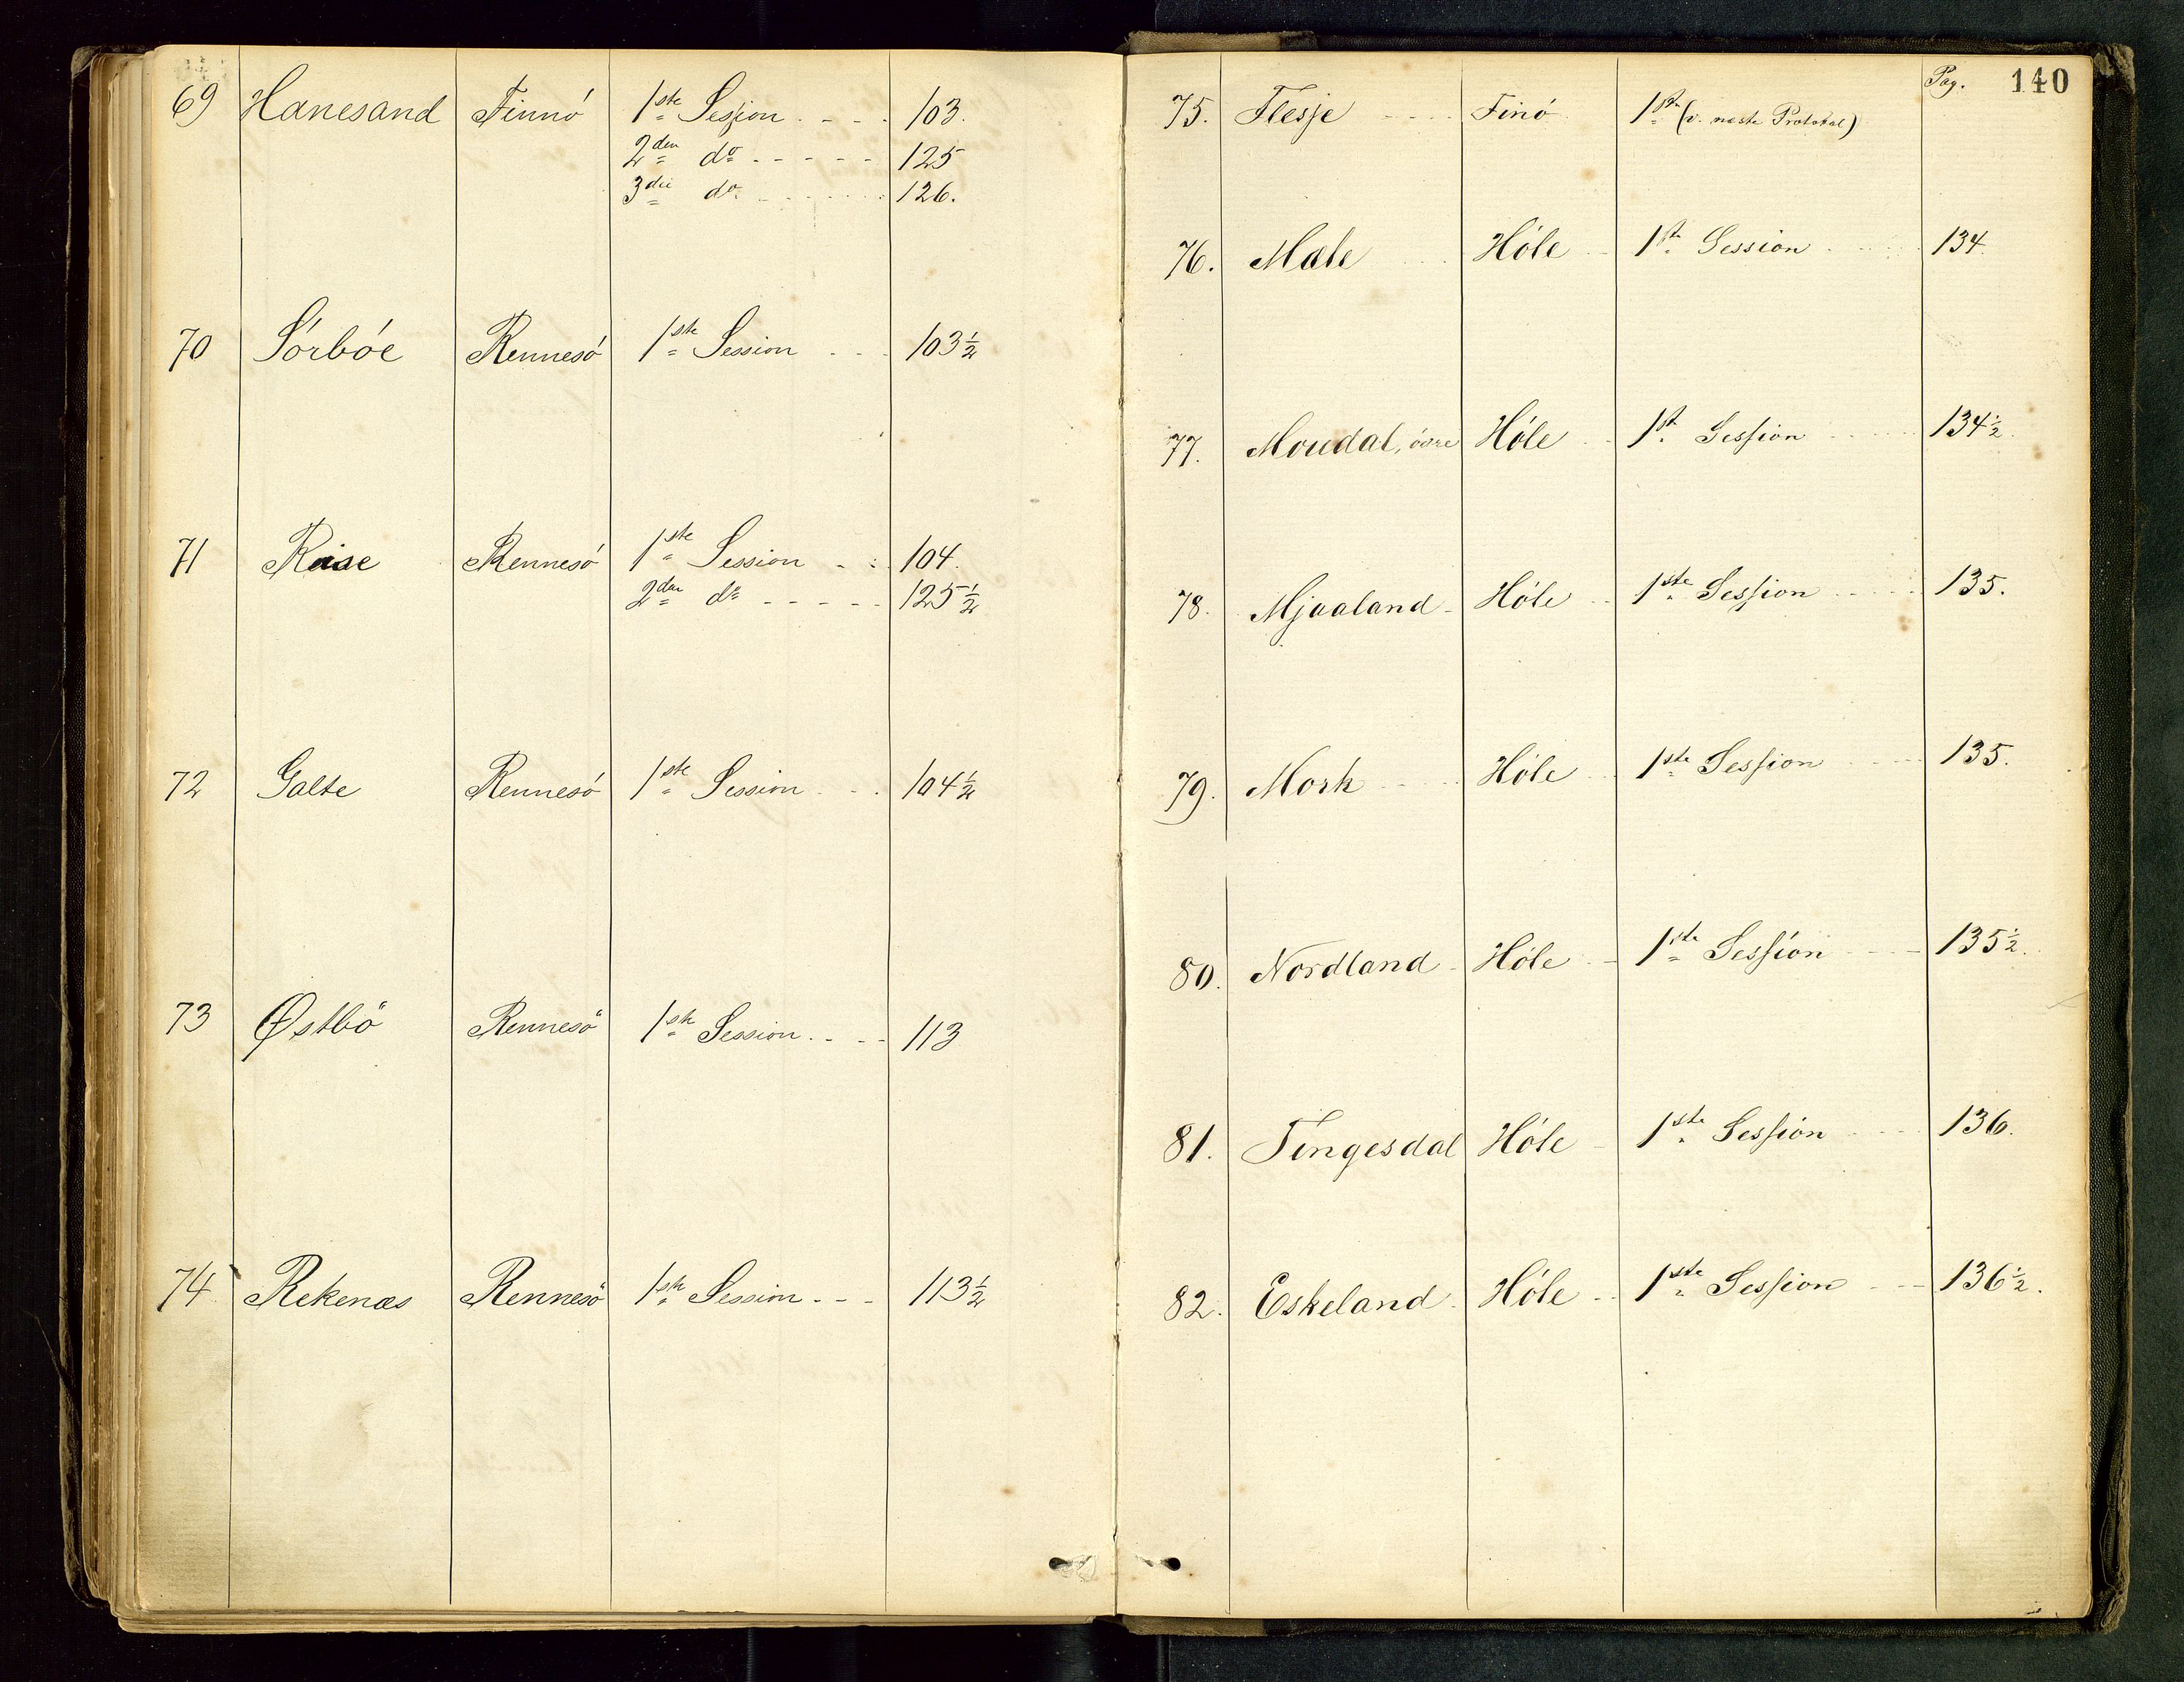 69 Hanesand Finnó 1ste Session . - - . 103.
2den do - - - - - 125
3die do - - - - - 126.
70 Sórbóe Rennesó 1ste Session . . . 103 1/2
71 Reise Rennesó 1ste Session - : 104.
2den do - - - - - 125 1/2
72 Galte Rennesó 1ste Session . . . 104 1/2
73 Østbö Rennesö 1ste Session . - - - 113
74 Rekenæs Rennesö 1ste Session - - - 113 1/2
Pag. 140
75. Flesje - - - - Finó 1ste (v. næste Protokol)
76. Mæle Hóle 1ste Session 134.
77. Moudal, óvre Hóle 1ste Session 134 1/2.
78. Mjaaland - Hóle 1ste Session 135.
79. Mork Hóle 1ste Session 135.
80. Nordland - Hóle 1ste Session 135 1/2.
81. Tengesdal Hóle 1ste Session 136.
82. Eskeland Hóle 1ste Session 136 1/2.